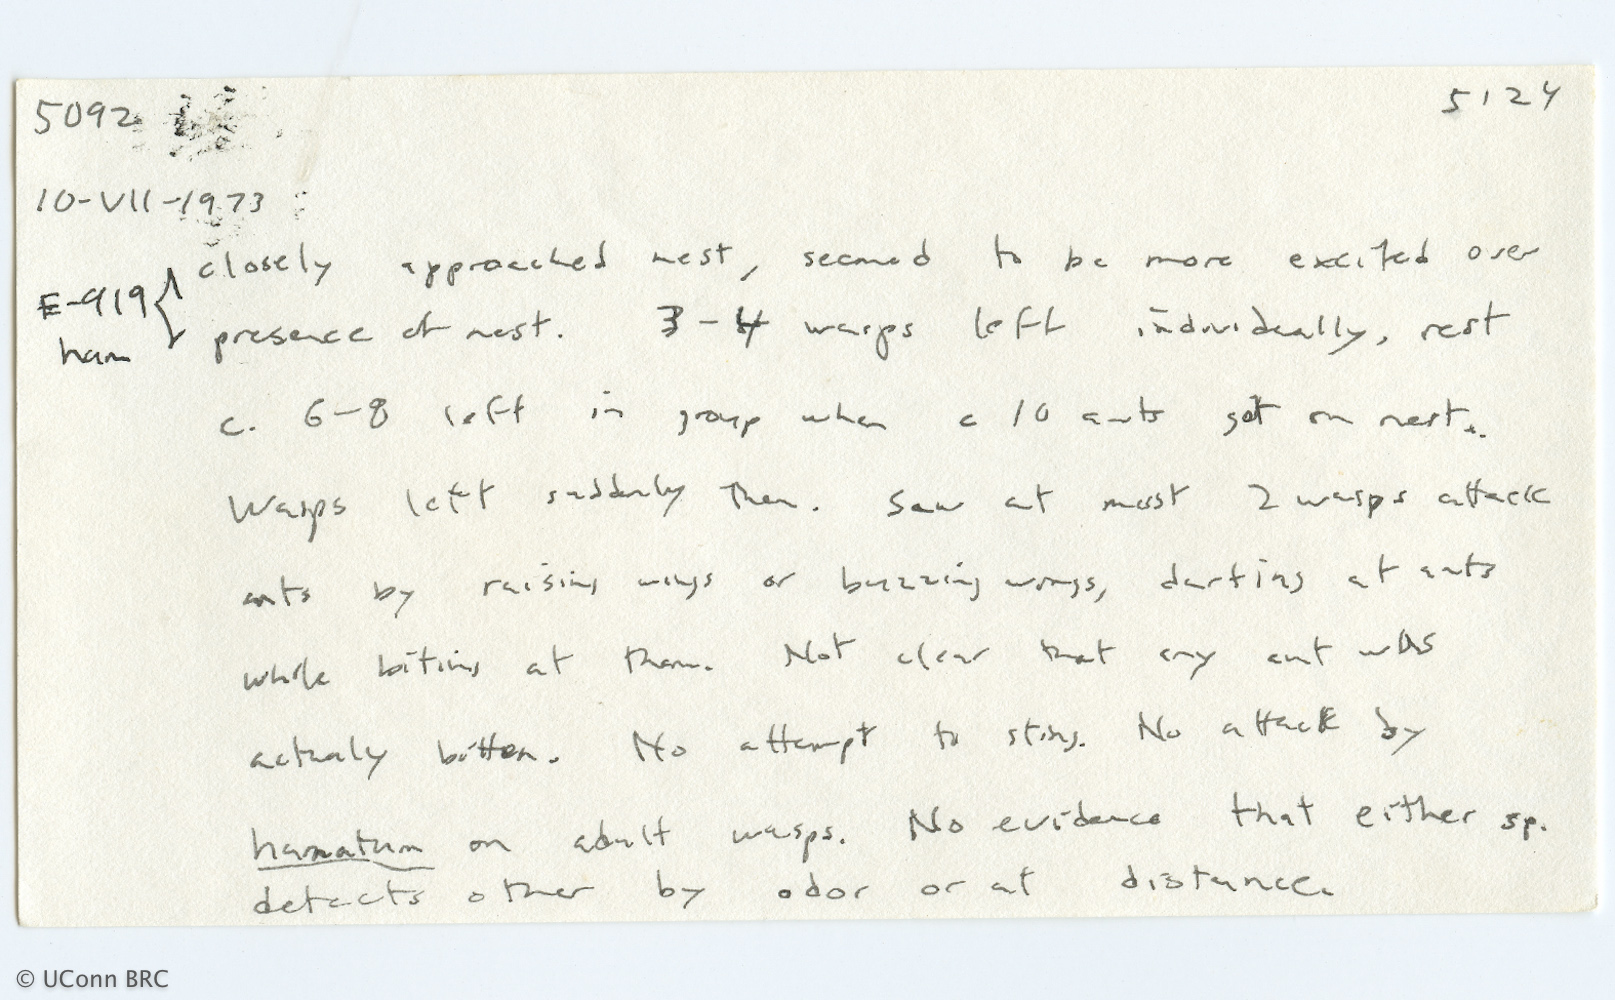 5092
5124
10-VII-1973
E-919
ham
closely approached nest, seemed to be more excited over
presence of nest. 3-4 wasps left individually, rest
c. 6-8 left in group when c 10 ants got on nest.
Wasps left suddenly then. Saw at most 2 wasps attack
ants by raising wings or buzzing wings, darting at ants
while biting at them. Not clear that any ant was
actualy bitten. No attempt to sting. No attack by
hamatum on adult wasps. No evidence that either sp.
detects other by odor or at distance.
© UConn BRC